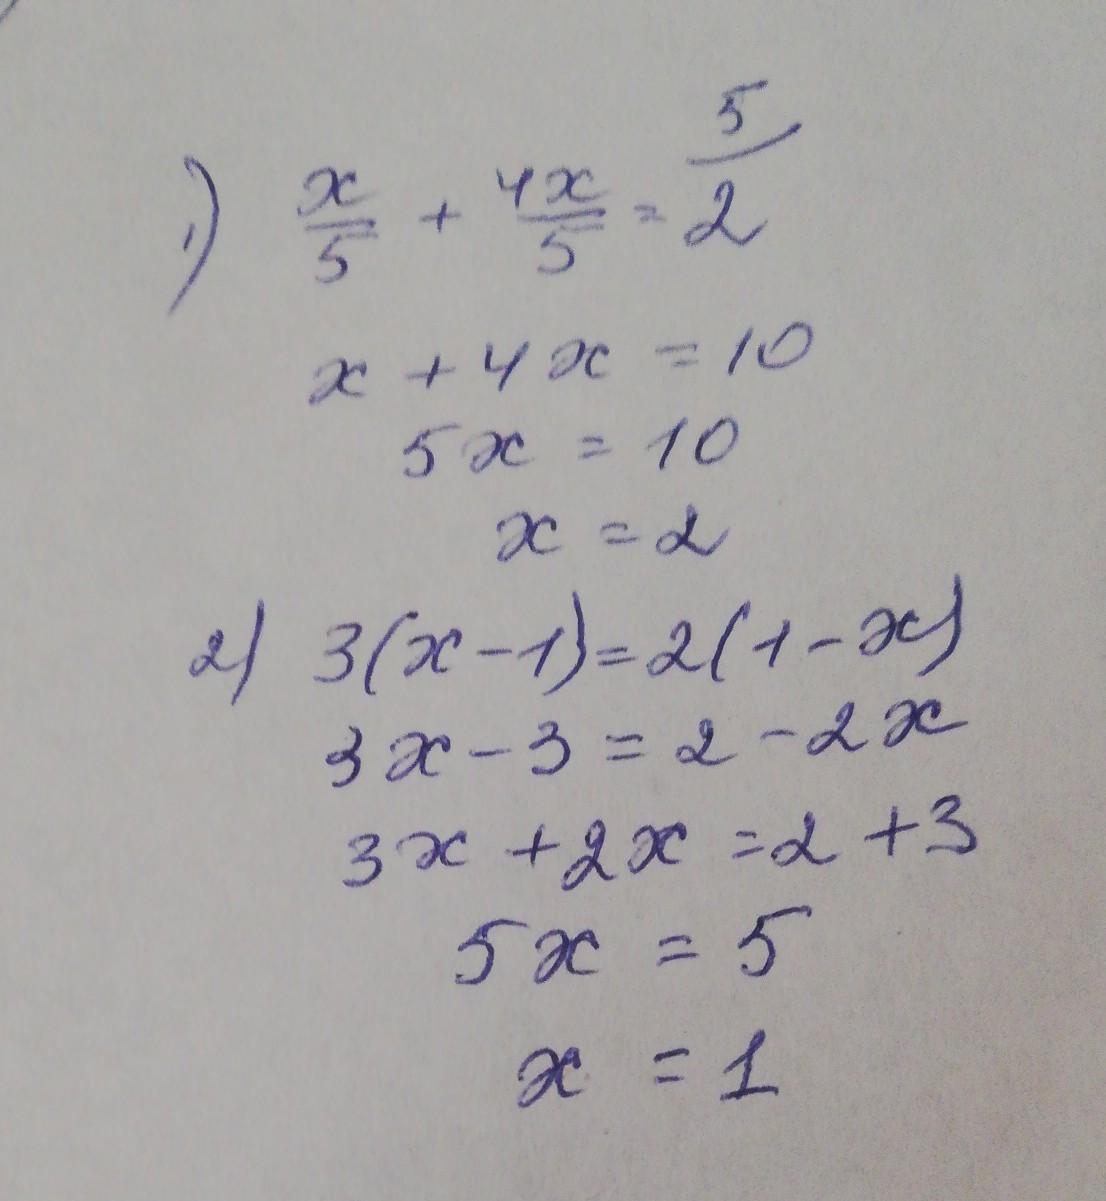 1) x/5 + 4x/5 = 5/2
x + 4x = 10
5x = 10
x = 2
2) 3(x-1)=2(1-x)
3x-3=2-2x
3x+2x=2+3
5x = 5
x = 1